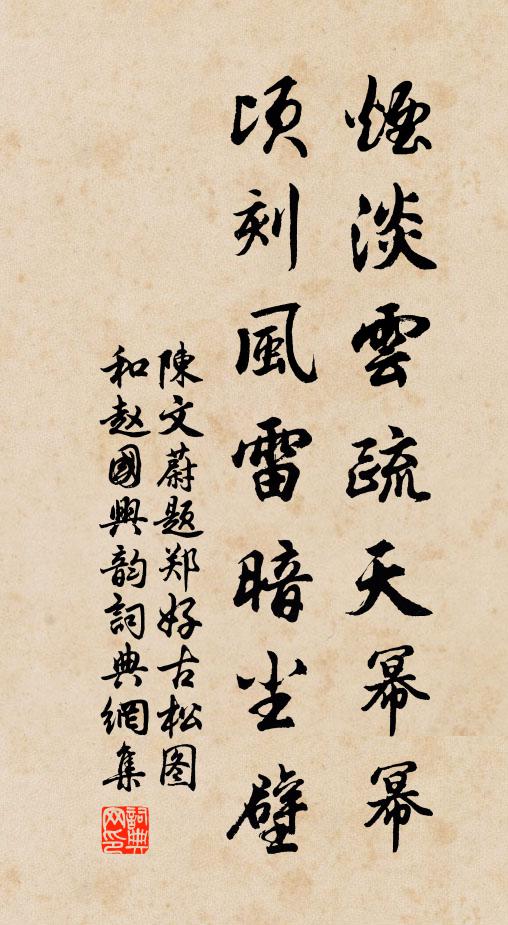 煙淡雲疏天幂幂
頃刻風雷暗尘壁
陳文蔚题郑好古松图
和赵國興韵詞典網集
詞典网印